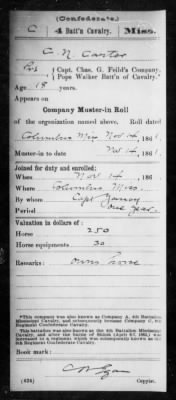 (Confederate.)
C 4 Batt'n Cavalry. Miss.
C. N. Carter
Pvt { Capt. Chas. G. Feild's Company,
Pope Walker Batt'n of Cavalry.*
Age 18 years.
Appears on
Company Muster-in Roll
of the organization named above. Roll dated
Columbus Miss Nov 14, 1861.
Muster-in to date Nov 14, 1861.
Joined for duty and enrolled:
When Nov 14, 1861.
Where Columbus Miss.
By whom Capt
Period one year.
Valuation in dollars of:
Horse 250
Horse equipments 30
Remarks: owns horse
*This company was also known as Company A, 4th Battalion Mississippi Cavalry, and subsequently became Company C, 8th Regiment Confederate Cavalry.
This battalion was also known as the 4th Battalion Mississippi Cavalry, and after the battle of Shiloh (April 6-7, 1862) was increased to a regiment which was subsequently known as the 8th Regiment Confederate Cavalry.
Book mark:
(636) Copyist.